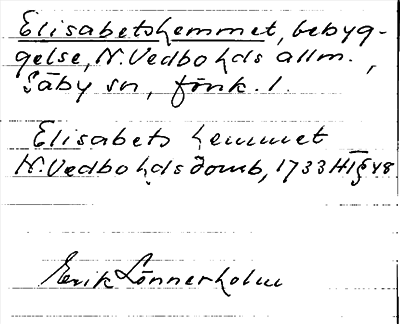 Elisabetshemmet, bebyg-
gelse, N. Vedbo hds allm.,
Säby sn, fönk. 1.
Elisabets hemmet
N. Vedbo hds domb, 1733 HT § 48
Erik Lönnerholm